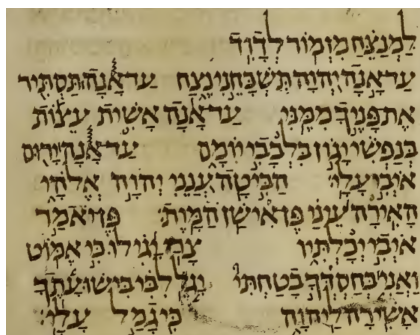 לַמְנַצֵּחַ מִזְמוֹר לְדָוִד
עַד אָנָה יְהוָה תִּשְׁכָּחֵנִי נֶצַח עַד אָנָה תַּסְתִּיר
אֶת פָּנֶיךָ מִמֶּנִּי עַד אָנָה אָשִׁית עֵצוֹת
בְּנַפְשִׁי יָגוֹן בִּלְבָבִי יוֹמָם עַד אָנָה יָרוּם
אֹיְבִי עָלָי הַבִּיטָה עֲנֵנִי יְהוָה אֱלֹהָי
הָאִירָה עֵינַי פֶּן אִישַׁן הַמָּוֶת פֶּן יֹאמַר
אֹיְבִי יְכָלְתִּיו צָרַי יָגִילוּ כִּי אֶמּוֹט
וַאֲנִי בְּחַסְדְּךָ בָטַחְתִּי יָגֵל לִבִּי בִּישׁוּעָתֶךָ
אָשִׁירָה לַיהוָה כִּי גָמַל עָלָי